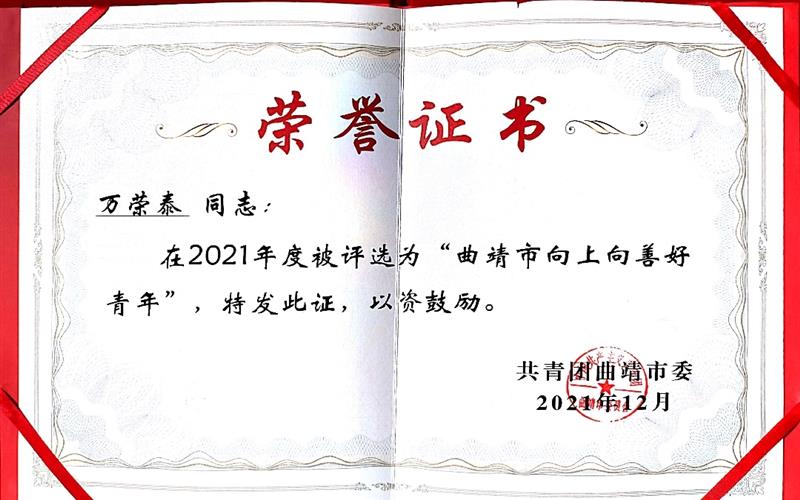 荣誉证书
万荣泰 同志：
在2021年度被评选为“曲靖市向上向善好
青年”，特发此证，以资鼓励。
共青团曲靖市委
2021年12月